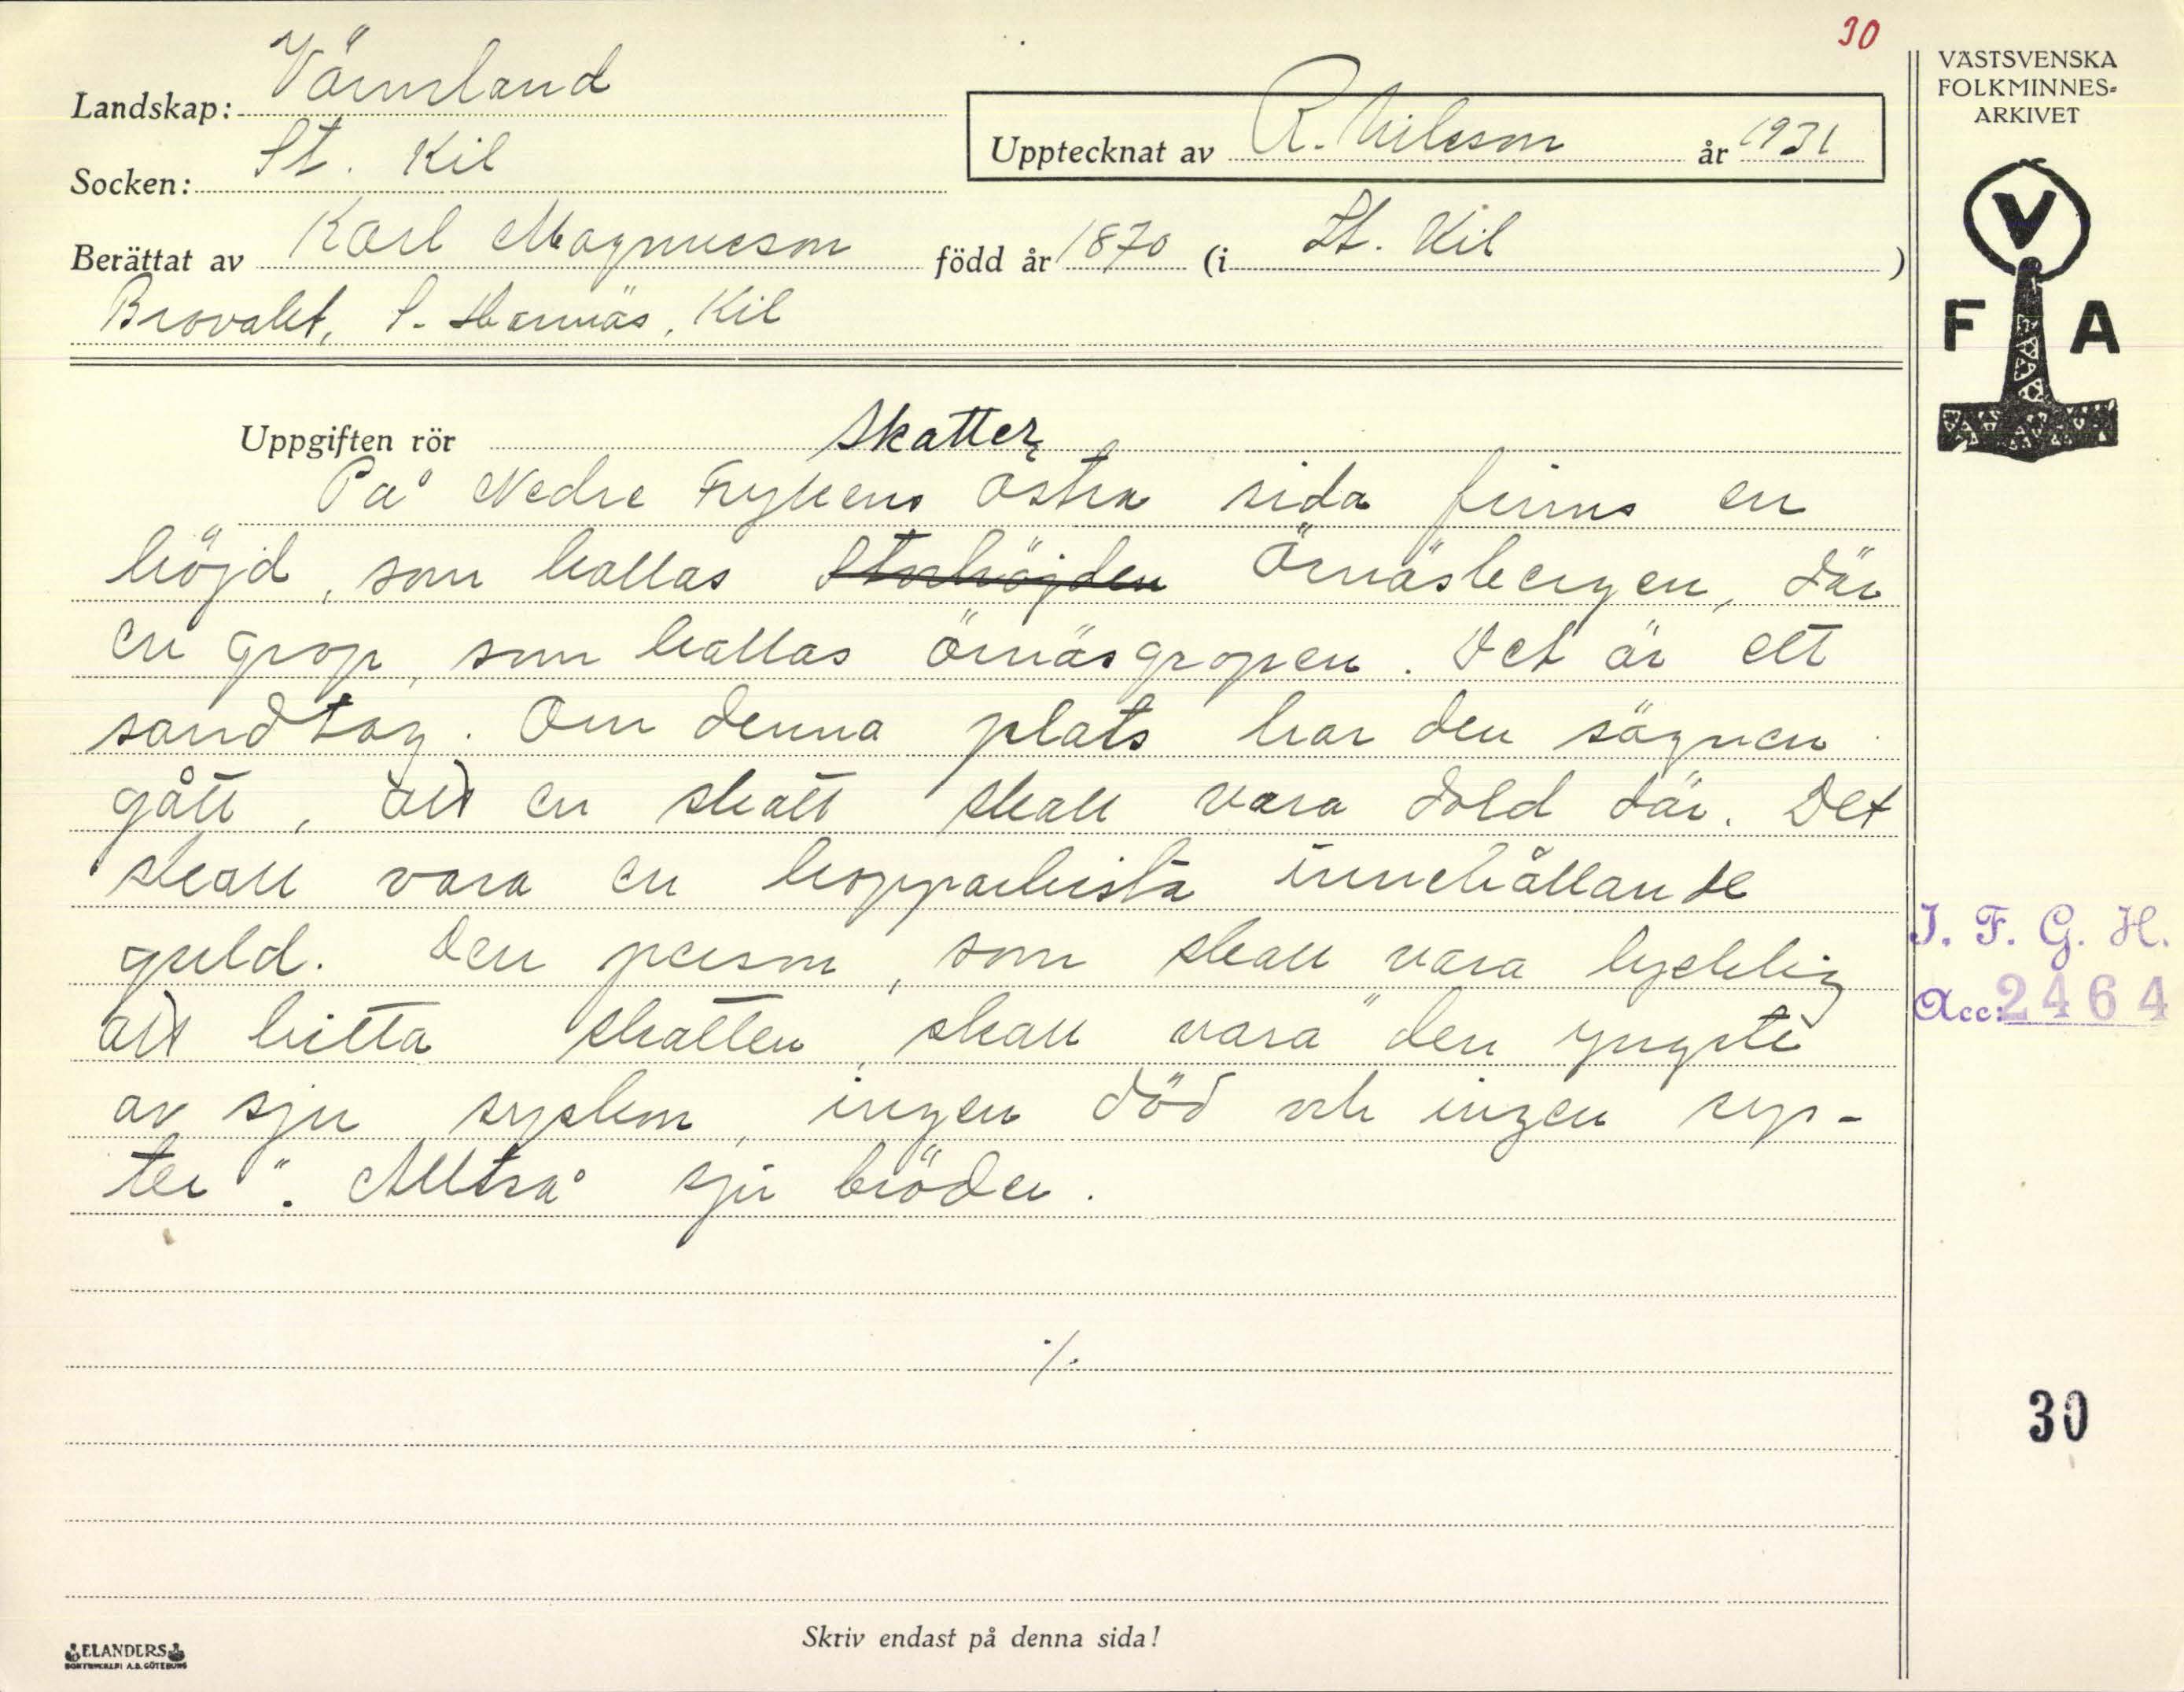 30
VÄSTSVENSKA
FOLKMINNES-
ARKIVET
Landskap: Värmland
Upptecknat av R. Nilsson år 1931
Socken: St. Kil
Berättat av Karl Magnusson född år 1870 (i St. Kil)
Brovalet, S. Hannäs, Kil
V
F A
Uppgiften rör Skatter
På Nedre Frykens östra sida finns en
höjd, som kallas Storhöjden Örnäsbergen, där
en grop, som kallas örnäsgropen. Det är ett
sandtag. Om denna plats har den sägnen
gått, att en skatt skall vara dold där. Det
skall vara en kopparkista innehållande
guld. Den person, som skall vara lycklig
att hitta skatten, skall vara "den yngste
av sju syskon, ingen död och ingen sys-
ter". Alltså sju bröder.
I. F. G. H.
Acc: 2464
./.
30
Skriv endast på denna sida!
ELANDERS
BOKTRYCKERI A.B. GÖTEBORG